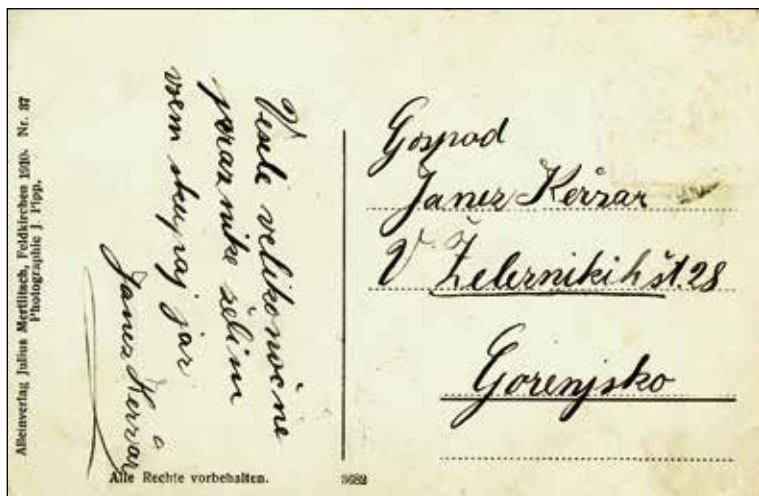 Alleinverlag Julius Mertlitsch, Feldkirchen 1910. Nr. 37
Photographie J. Pipp.
Vesele velikonočne
praznike želim
vsem skupaj jaz
Janez Keržar
Alle Rechte vorbehalten.
3682
Gospod
Janez Keržar
V Železnikih št. 28
Gorenjsko